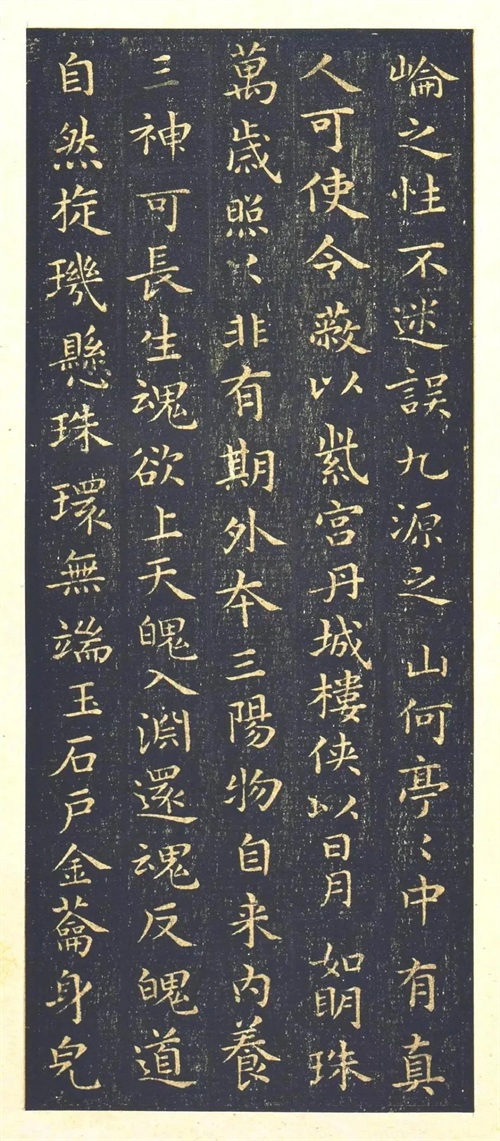 崘之性不迷誤九源之山何亭〻中有真
人可使令蔽以紫宮丹城樓俠以日月如明珠
萬歲照〻非有期外夲三陽物自来内養
三神可長生魂欲上天魄入淵還魂反魄道
自然㧕璣懸珠環無端玉石戶金蘥身皃